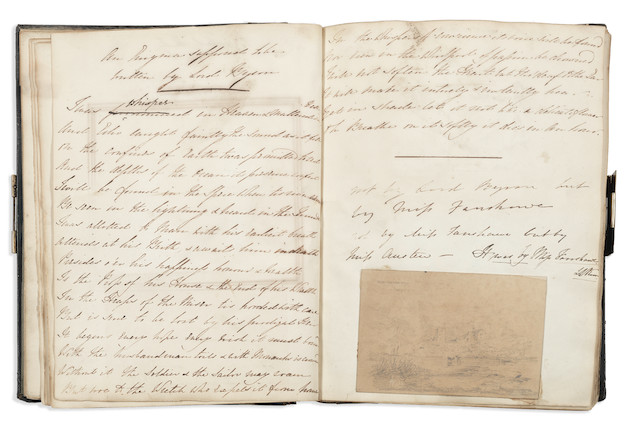 An Enigma supposed to be
written by Lord Byron
whisper
Twas pronounced in Heaven & muttered in Hell
And Echo caught faintly the sound as it fell
On the confines of Earth twas permitted to rest
And the depths of the Ocean its presence confest
Twill be found in the Sphere when tis riven asunder
Be seen in the lightning & heard in the Thunder
Twas allotted to Man with his earliest breath
Attends at his Birth & awaits him in death
Presides o'er his happiness honour & health
Is the Prop of his House & the End of his Wealth
In the Heaps of the Miser tis hoarded with care
But is sure to be lost by his prodigal Heir
It begins every hope every wish it must bound
With the husbandman toils & with Monarchs is crown'd
Without it the Soldier & the Sailor may roam
But woe to the Wretch who expels it from home
In the Whispers of conscience its voice will be found
Nor e'en in the Whirlpool of passion be drowned
Twill not soften the Heart but tho' deaf to the Ear
It will make it entirely & instantly hear
Yet in shade let it rest like a delicate flower
Oh Breathe on it softly it dies in an hour.
not by Lord Byron but
by Miss Fanshawe
& by Miss Fanshawe but by
Miss Austen – by Miss Fanshawe